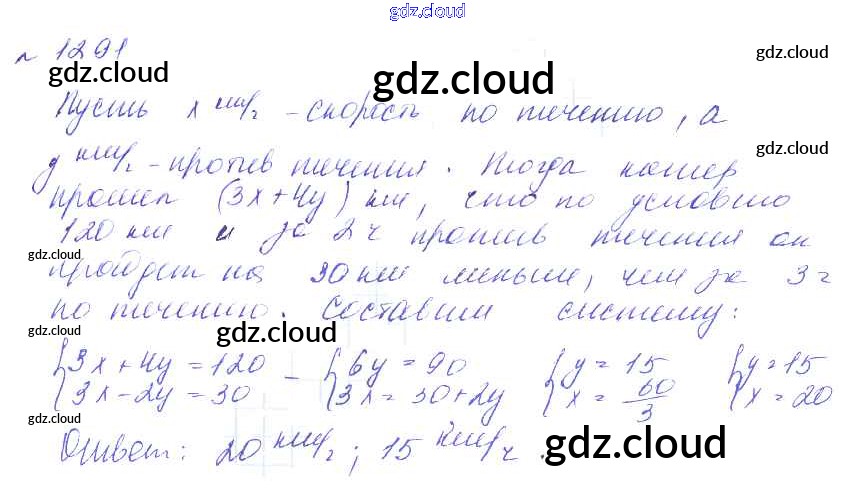 gdz.cloud
№ 1291
gdz.cloud gdz.cloud gdz.cloud
Пусть x км/ч - скорость по течению, а
y км/ч - против течения. Тогда катер
gdz.cloud
прошел (3x+4y) км, что по условию
120 км и за 2ч против течения он
gdz.cloud
пройдет на 30 км меньше, чем за 3 ч
по течению. Составим систему:
gdz.cloud gdz.cloud
{3x+4y=120 - {6y=90 {y=15 {y=15
{3x-2y=30 {3x=30+2y {x=60/3 {x=20
gdz.cloud
Ответ: 20 км/ч; 15 км/ч.
gdz.cloud